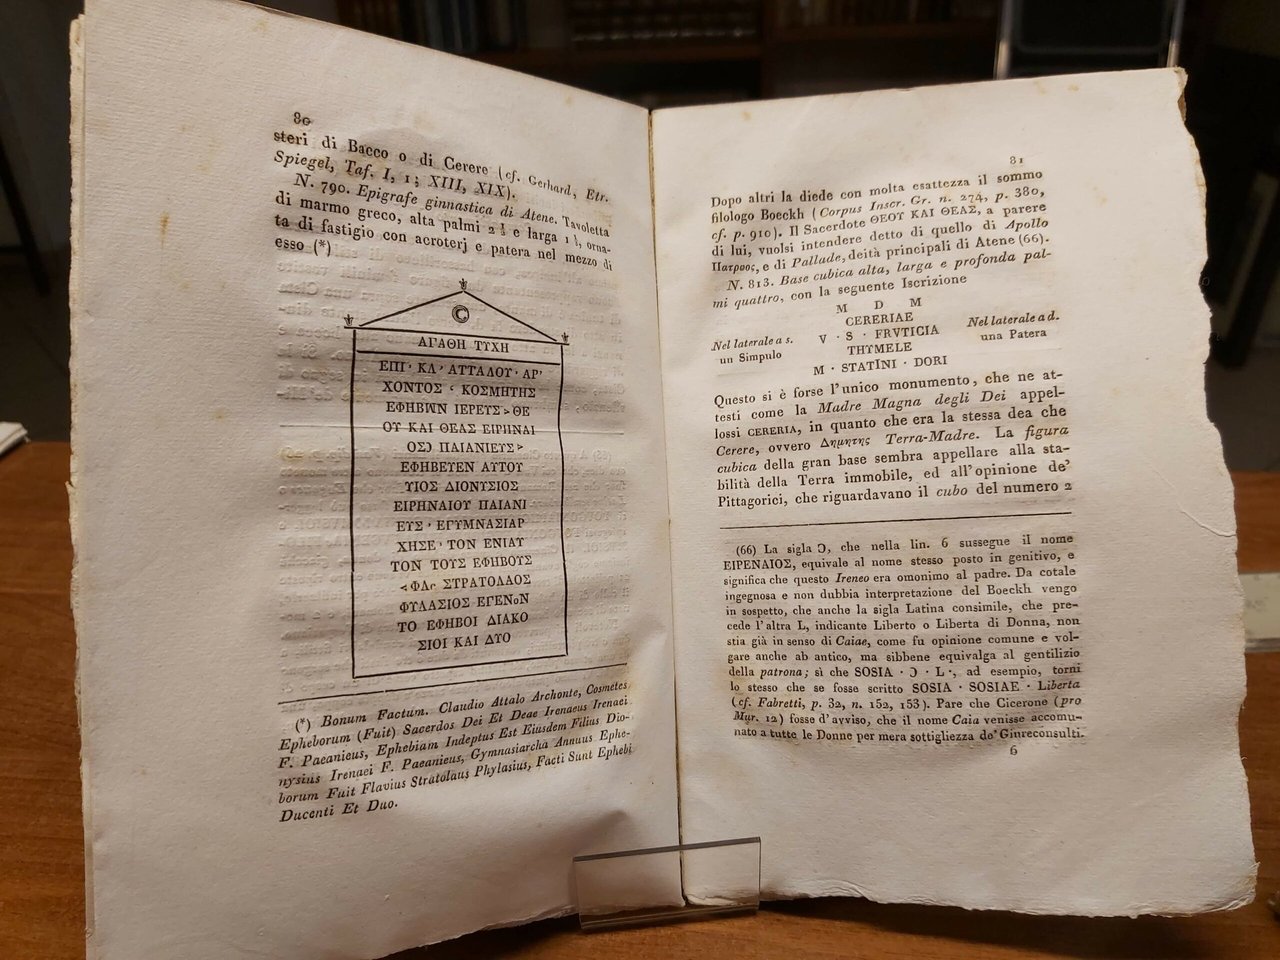 80
steri di Bacco o di Cerere (cf. Gerhard, Etr.
Spiegel, Taf. I, 1; XIII, XIX).
N. 790. Epigrafe ginnastica di Atene. Tavoletta
di marmo greco, alta palmi 2 ½ e larga 1 ½, orna-
ta di fastigio con acroterj e patera nel mezzo di
esso (*)
ΑΓΑΘΗ ΤΥΧΗ
ΕΠΙ · ΚΛ · ΑΤΤΑΛΟΥ · ΑΡ ·
ΧΟΝΤΟΣ ‹ ΚΟΣΜΗΤΗΣ
ΕΦΗΒΩΝ ΙΕΡΕΥΣ > ΘΕ
ΟΥ ΚΑΙ ΘΕΑΣ ΕΙΡΗΝΑΙ
ΟΣϽ ΠΑΙΑΝΙΕΥΣ >
ΕΦΗΒΕΥΕΝ ΑΥΤΟΥ
ΥΙΟΣ ΔΙΟΝΥΣΙΟΣ
ΕΙΡΗΝΑΙΟΥ ΠΑΙΑΝΙ
ΕΥΣ · ΕΓΥΜΝΑΣΙΑΡ
ΧΗΣΕ · ΤΟΝ ΕΝΙΑΥ
ΤΟΝ ΤΟΥΣ ΕΦΗΒΟΥΣ
<ΦΛ ΣΤΡΑΤΟΛΑΟΣ
ΦΥΛΑΣΙΟΣ ΕΓΕΝοΝ
ΤΟ ΕΦΗΒΟΙ ΔΙΑΚΟ
ΣΙΟΙ ΚΑΙ ΔΥΟ
(*) Bonum Factum. Claudio Attalo Archonte, Cosmetes
Epheborum (Fuit) Sacerdos Dei Et Deae Irenaeus Irenaei
F. Paeanieus, Ephebiam Indeptus Est Eiusdem Filius Dio-
nysius Irenaei F. Paeanieus, Gymnasiarcha Annuus Ephe-
borum Fuit Flavius Stratolaus Phylasius, Facti Sunt Ephebi
Ducenti Et Duo.
81
Dopo altri la diede con molta esattezza il sommo
filologo Boeckh (Corpus Inscr. Gr. n. 274, p. 380,
cf. p. 910). Il Sacerdote ΘΕΟΥ ΚΑΙ ΘΕΑΣ, a parere
di lui, vuolsi intendere detto di quello di Apollo
Πατρωος, e di Pallade, deità principali di Atene (66).
N. 813. Base cubica alta, larga e profonda pal-
mi quattro, con la seguente Iscrizione
M D M
CERERIAE
V · S · FRVTICIA
THYMELE
M · STATINI · DORI
Nel laterale a s.
un Simpulo
Nel laterale a d.
una Patera
Questo si è forse l'unico monumento, che ne at-
testi come la Madre Magna degli Dei appel-
lossi CERERIA, in quanto che era la stessa dea che
Cerere, ovvero Δημητης Terra-Madre. La figura
cubica della gran base sembra appellare alla sta-
bilità della Terra immobile, ed all'opinione de'
Pittagorici, che riguardavano il cubo del numero 2
(66) La sigla Ͻ, che nella lin. 6 sussegue il nome
ΕΙΡΕΝΑΙΟΣ, equivale al nome stesso posto in genitivo, e
significa che questo Ireneo era omonimo al padre. Da cotale
ingegnosa e non dubbia interpretazione del Boeckh vengo
in sospetto, che anche la sigla Latina consimile, che pre-
cede l'altra L, indicante Liberto o Liberta di Donna, non
stia già in senso di Caiae, come fu opinione comune e vol-
gare anche ab antico, ma sibbene equivalga al gentilizio
della patrona; sì che SOSIA · Ͻ · L ·, ad esempio, torni
lo stesso che se fosse scritto SOSIA · SOSIAE · Liberta
(cf. Fabretti, p. 32, n. 152, 153). Pare che Cicerone (pro
Mur. 12) fosse d'avviso, che il nome Caia venisse accomu-
nato a tutte le Donne per mera sottigliezza de' Giureconsulti.
6